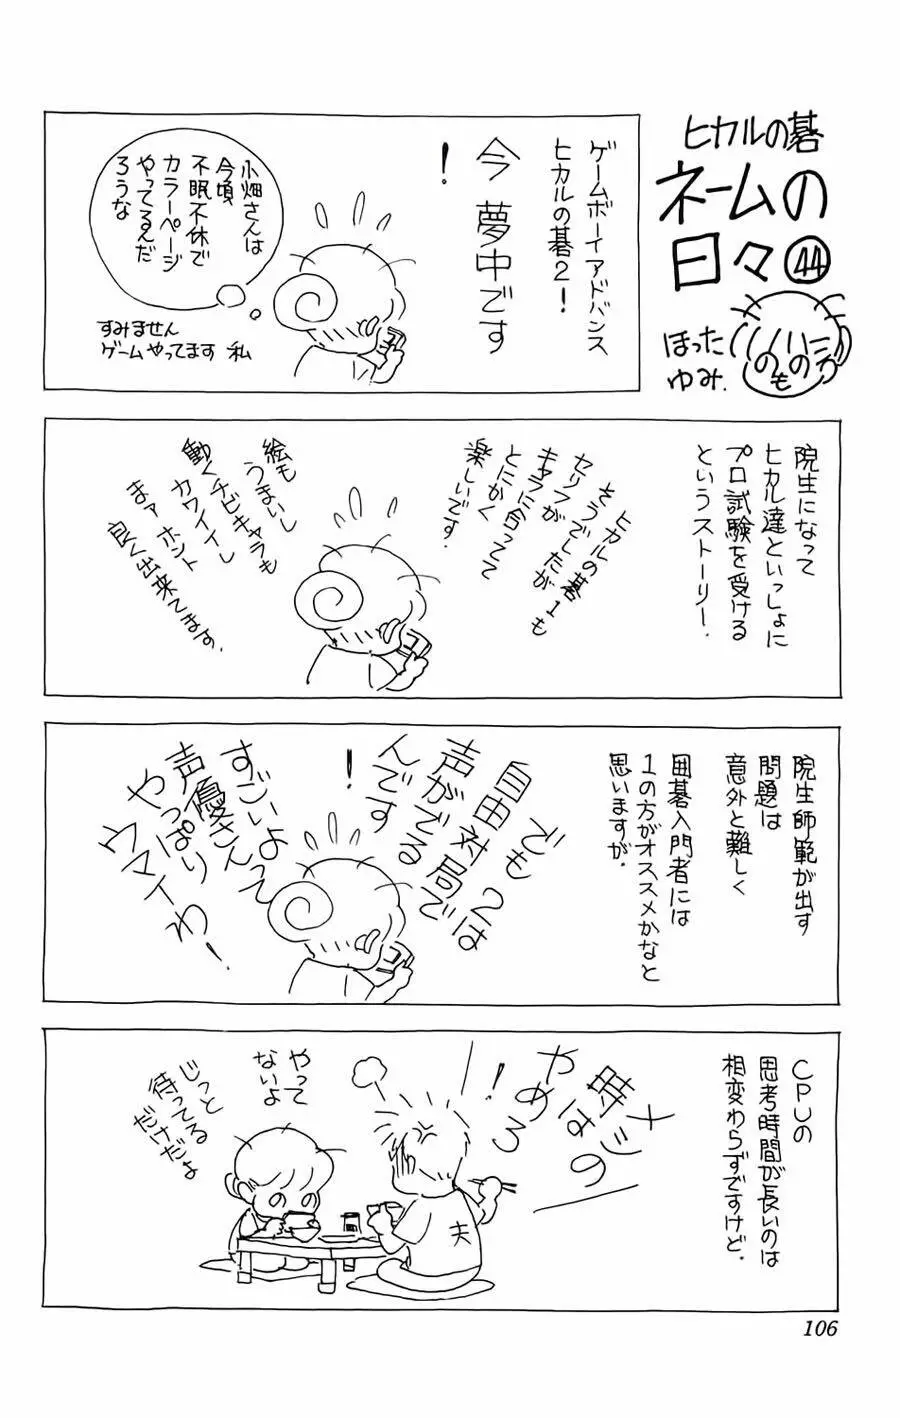 ヒカルの碁
ネームの
日々㊹
ほった
ゆみ.
へのへのもの
ゲームボーイアドバンス
ヒカルの碁2!
今 夢中です
!
小畑さんは
今頃
不眠不休で
カラーページ
やってるんだ
ろうな
すみません
ゲームやってます 私
院生になって
ヒカル達といっしょに
プロ試験を受ける
というストーリー.
ヒカルの碁1も
そうでしたが
セリフが
キャラに合ってて
とにかく
楽しいです.
絵も
うまいし
働くチビキャラも
カワイイし
まァ ホント
良く出来てます.
院生師範が出す
問題は
意外と難しく
囲碁入門者には
1の方がオススメかなと
思いますが.
でも2は
自由対局で
声がでる
んです
!
すごいよって
声優さん
やっぱり
ウマイわ!
CPUの
思考時間が長いのは
相変わらずですけど.
メシの
時は
やめろ
!
夫
やって
ないよ
じっと
待ってる
だけだよ
106